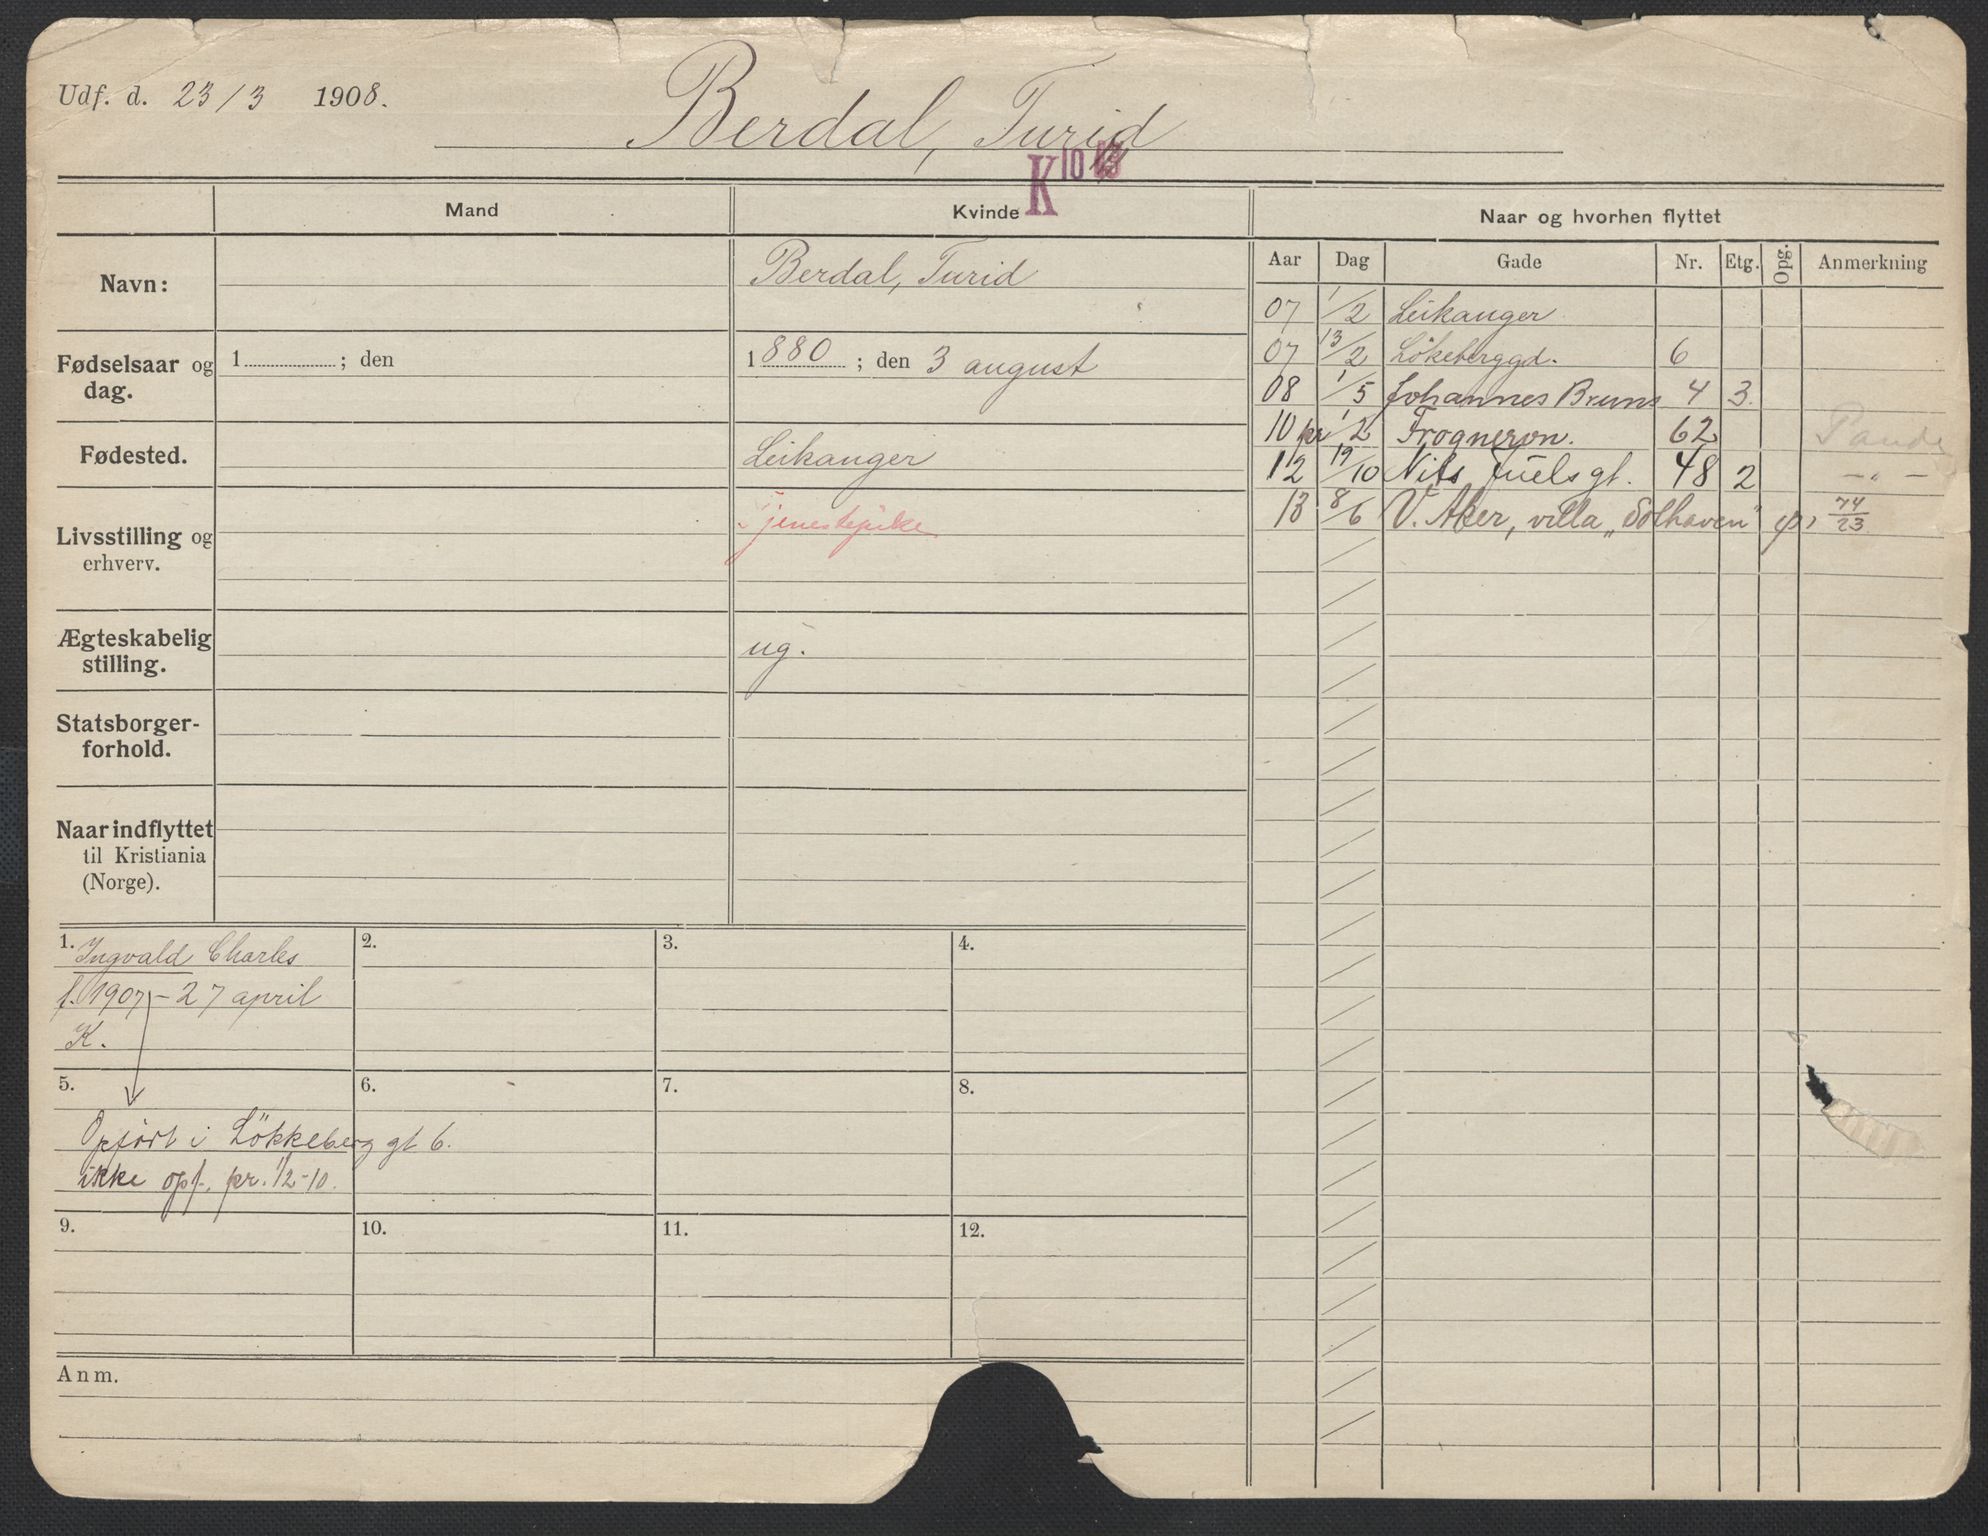 Udf. d. 23/3 1908.
Berdal, Turid
K 10
Mand
Kvinde
Naar og hvorhen flyttet
Navn:
Berdal, Turid
Fødselsaar og dag.
1 ; den
1880 ; den 3 august
Fødested.
Leikanger
Livsstilling og erhverv.
Tjenestepike
Ægteskabelig stilling.
ug.
Statsborger-
forhold.
Naar indflyttet
til Kristiania
(Norge).
Aar Dag Gade Nr. Etg. Opg. Anmerkning
07 1/2 Leikanger
07 13/2 Lökeberggd. 6
08 1/5 Johannes Bruns 4 3.
10 pr 1/2 Frognervn. 62
12 19/10 Nils Juels gt. 48 2 -"-
13 8/6 V. Aker, villa „Solhaven" 74/23
1. Ingvald Charles
f. 1907 - 27 april
K.
2.
3.
4.
5.
Opført i Lökkeberg gt 6.
ikke opf. pr. 1/2-10.
6.
7.
8.
9.
10.
11.
12.
Anm.